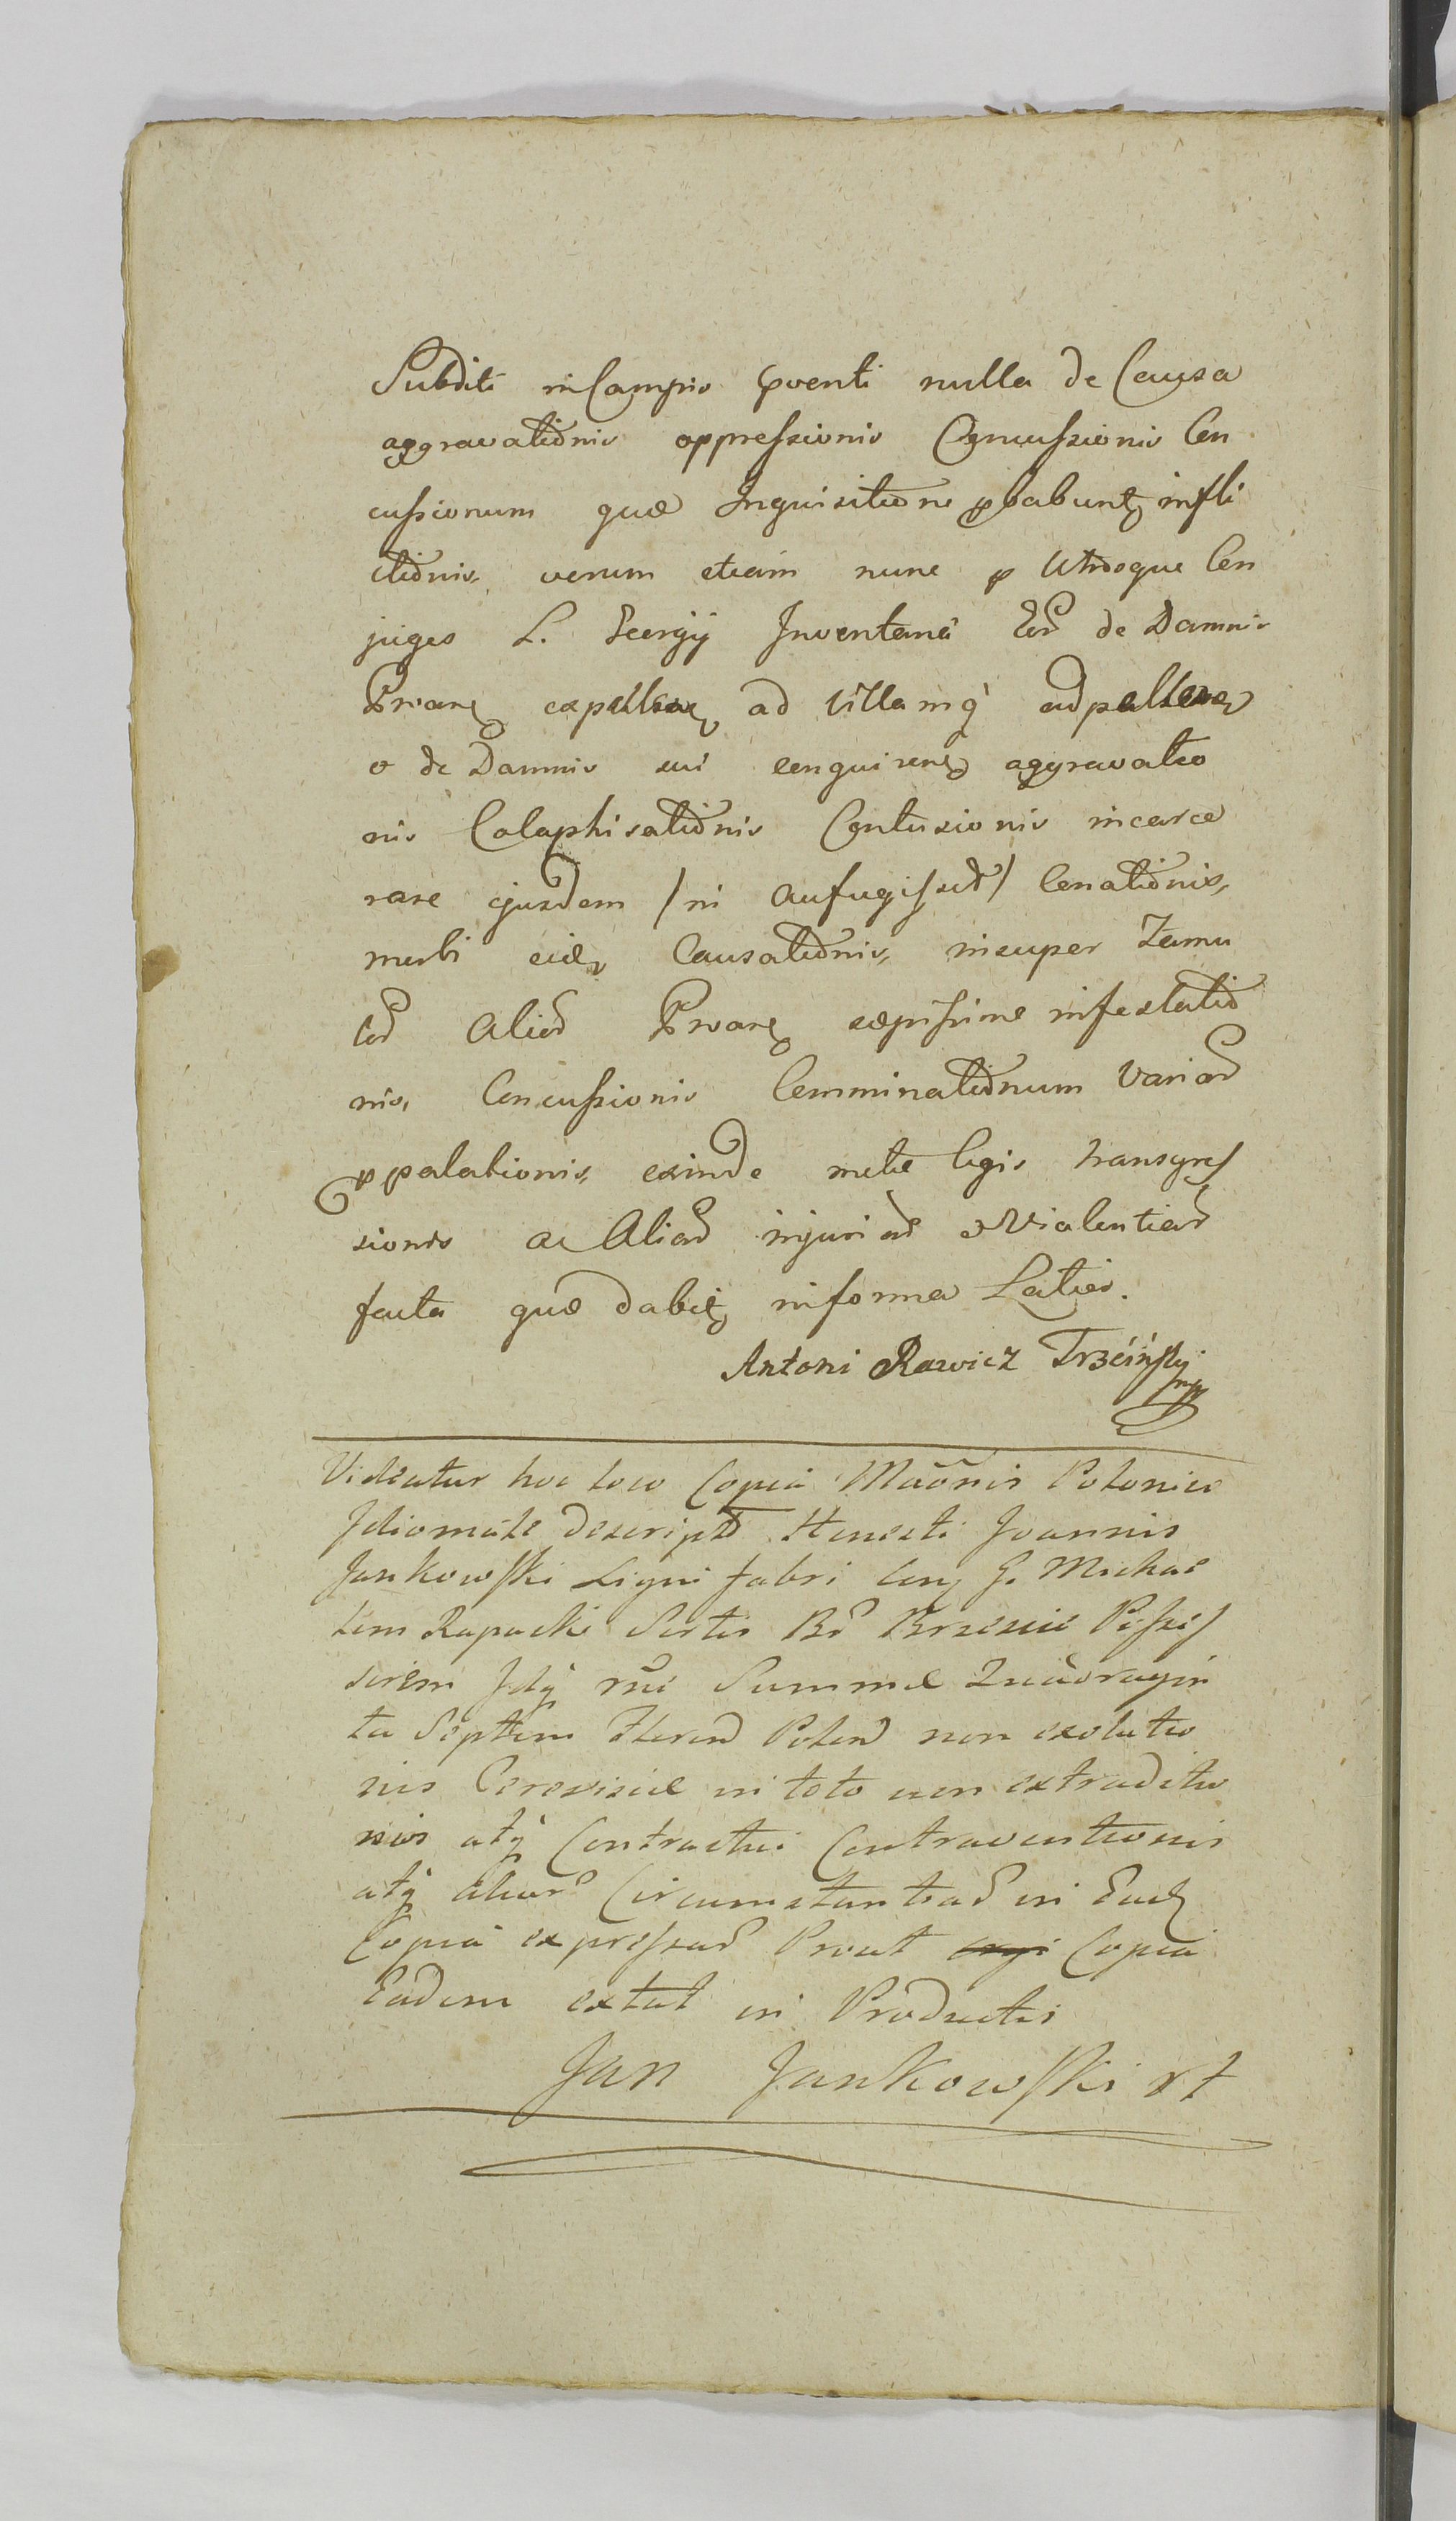 Subditi in Campis venti nulla de Causa
aggravationis oppressionis Concussionis Con
cussionum quæ Inquisitione pbabunt infli
ctionis, verum etiam nunc p Utrosque Con
juges L. Georgÿ Inventane Eor de Damnis
expellere ad Villamq adpellere
o de Damnis sui conquirere aggravatio
nis Colaphisationis Contusionis incarce
rare ejusdem /ni aufugisset/ Conationis,
morbi eide Causationis, insuper Famu
lor Alior sæpissime infestatio
nis, Concussionis Comminationum Variar
ppalationis, exinde metæ legis transgres
sionis ac Aliar injuriar Violentiar
facta quæ dabit in forma Latior.
Antoni Rawicz Trzcińsky mp
Videatur hoc loco Copia Mãonis Polonico
Idiomate descripta Honesti Joannis
Jankowski Ligni fabri Con G. Micha
lem Rapacki Sortis Br Brzezie Possess
sorem Idq rñe Summæ Quadragin
ta Septem Floren Polon non exolutio
nis Cerevisiæ in toto non extraditio
nis atq Contractui Contraventionis
atq alior Circumstantiar in Ead
Copia expressar Prout Copia
Eadem extat in Productis
Jan Jankowski